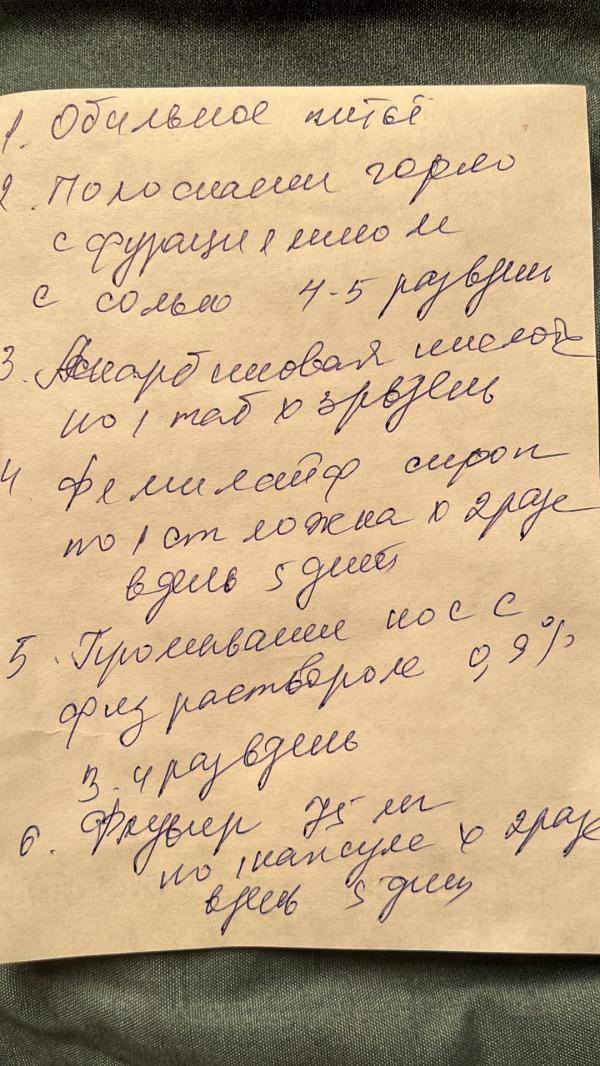 1. Обильное питьё
2. Полоскание горло
с фурацилином
с солью 4-5 раз в день
3. Аскорбиновая кислота
по 1 таб х 3 р в день
4 Фемилайф сироп
по 1 ст ложка х 2 раза
в день 5 дней
5. Промывание нос с
физ раствором 0,9%
3-4 раз в день
6. 75 мг
по 1 капсуле х 2 раза
в день 5 дней